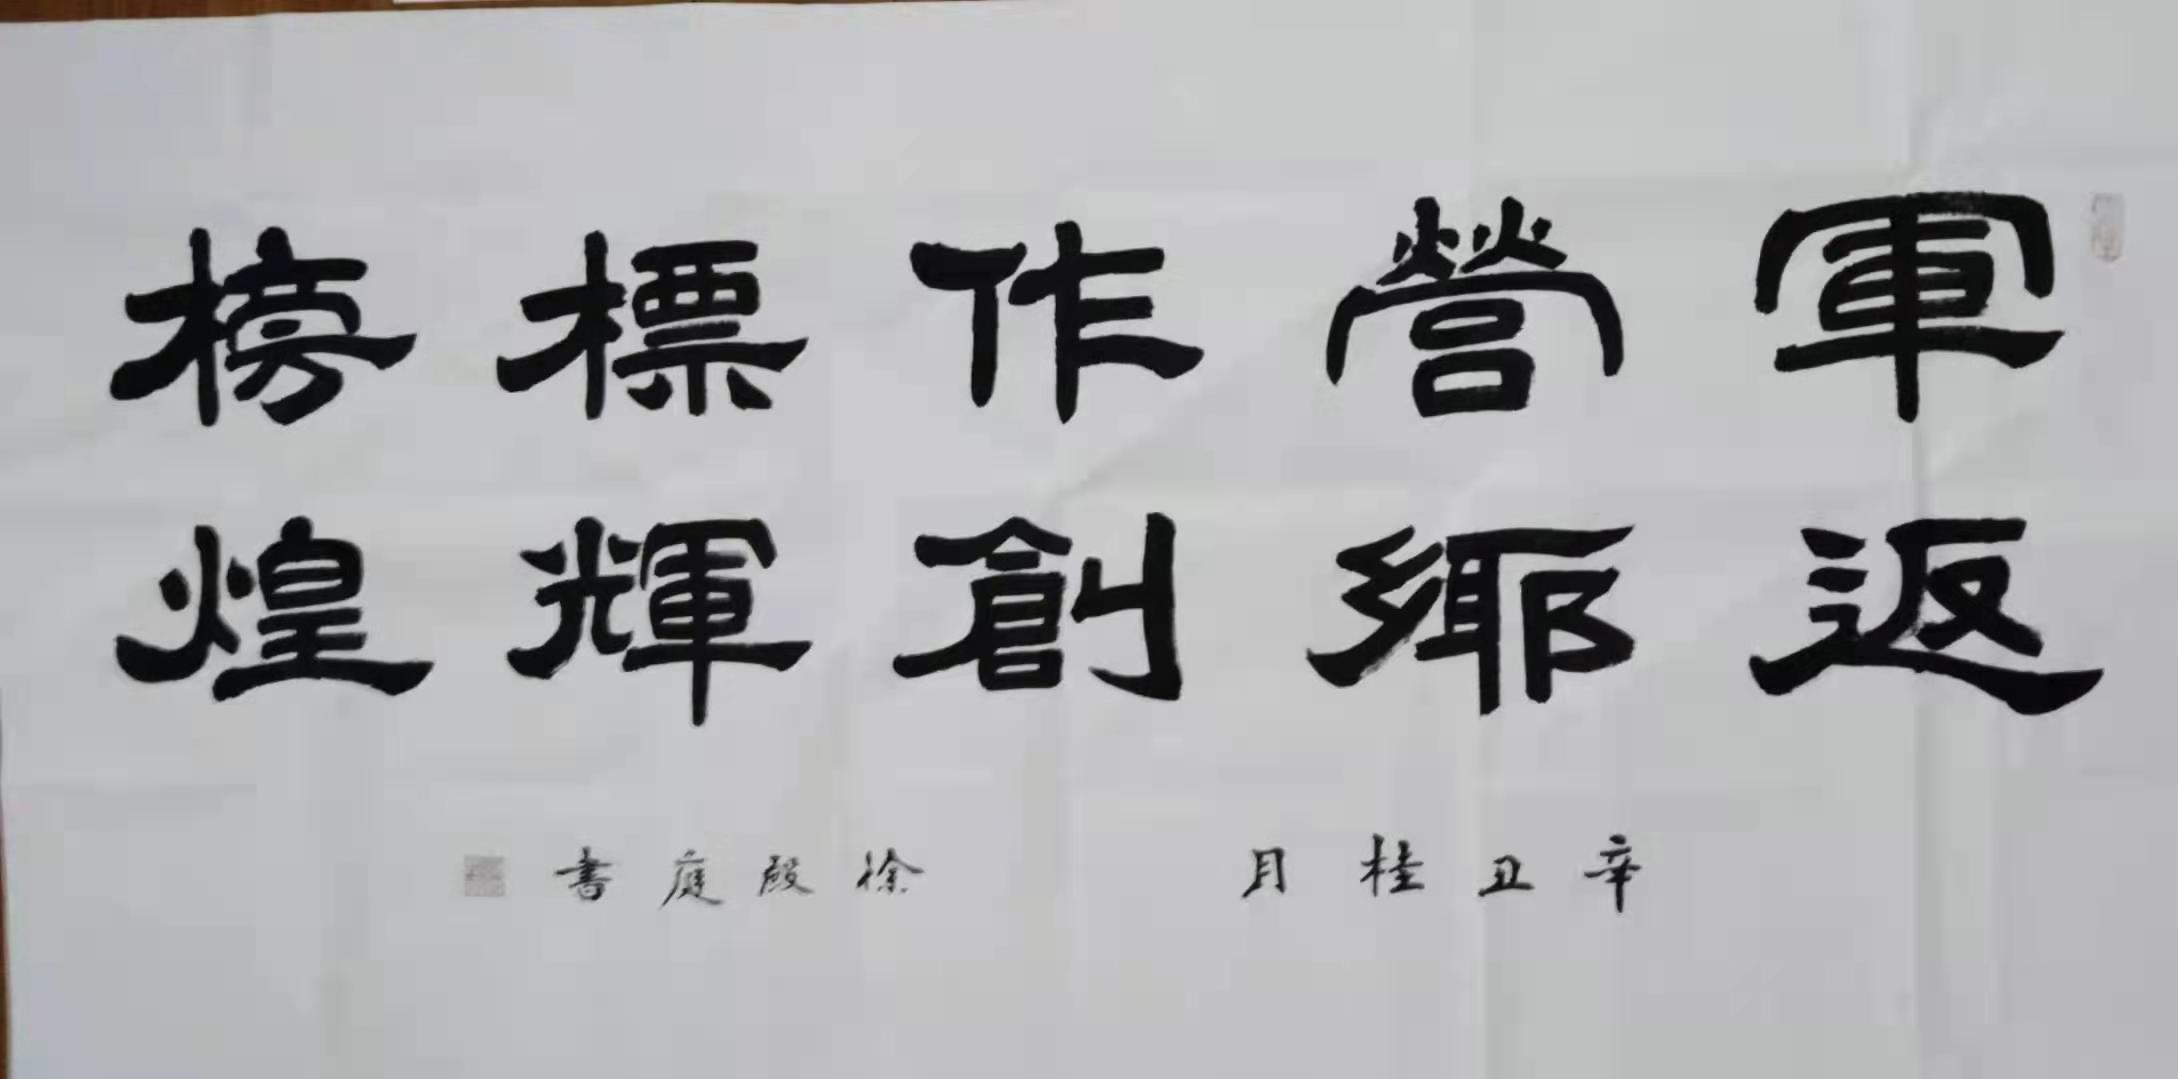 軍營作標榜
返鄉創輝煌
辛丑桂月 徐殿庭書